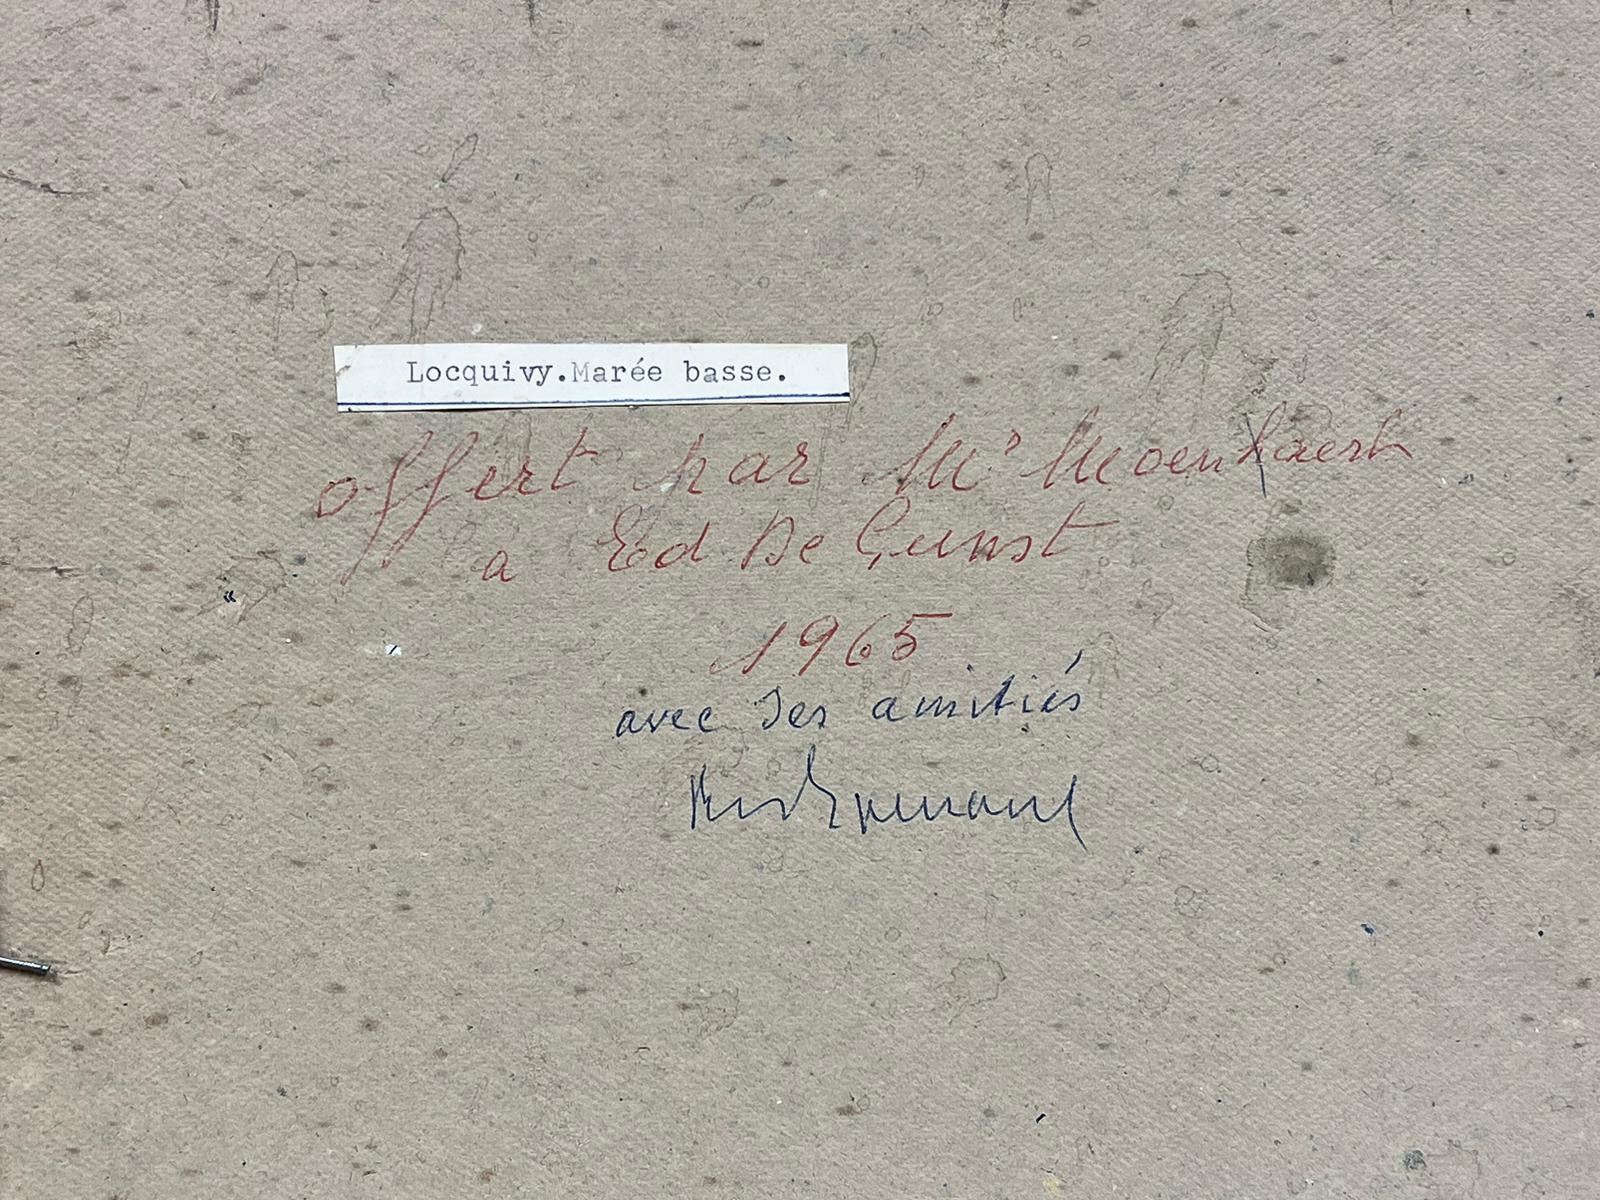 Locquivy.Marée basse.
offert par Mr Moenhaert
a Ed De Gunst
1965
avec ses amitiés